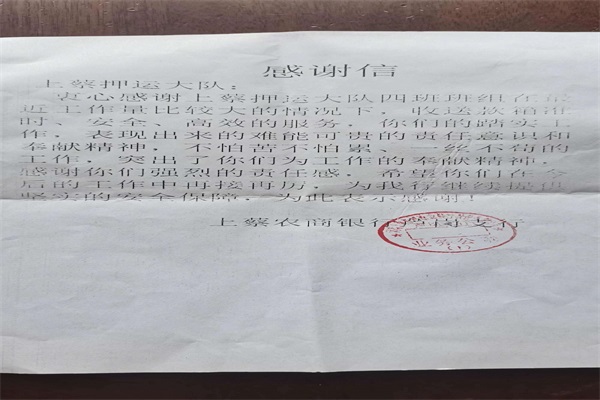 感谢信
上蔡押运大队：
衷心感谢上蔡押运大队四班班组在最
近工作量比较大的情况下，收送款箱准
时、安全、高效的服务，你们的踏实工
作，表现出来的难能可贵的责任意识和
奉献精神，不怕苦不怕累、一丝不苟的
工作，突出了你们为工作的奉献精神，
感谢你们强烈的责任感，希望你们在今
后的工作中再接再厉，为我行继续提供
坚实的安全保障，为此表示感谢！
上蔡农商银行 支行
业务公章
(1)